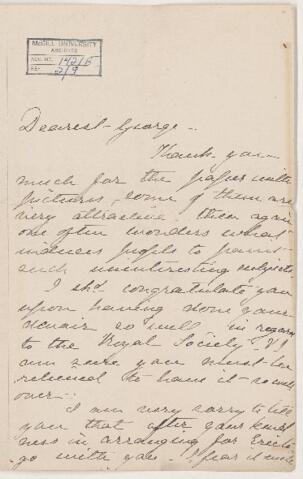 McGILL UNIVERSITY
ARCHIVES
ACC. NO. 1421/6
REF. 219
Dearest George -
Thank you
much for the papers with
pictures, some of them are
very attractive. then again
one often wonders what
induces people to paint
such uninteresting subjects
I shd. congratulate you
upon having done your
so well in regard
to the Royal Society & I
am sure you must be
relieved to have it
over -
I am very sorry to tell
you that after your kind-
ness in arranging for Eric to
go with you I fear it